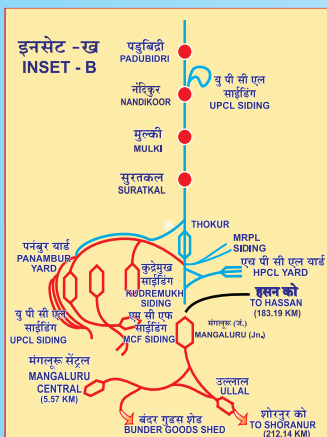 इनसेट -ख
INSET - B
पडुबिद्री
PADUBIDRI
नंदिकुर
NANDIKOOR
यु पी सी एल
साईडिंग
UPCL SIDING
मुल्की
MULKI
सुरतकल
SURATKAL
THOKUR
पनंबुर यार्ड
PANAMBUR
YARD
MRPL
SIDING
एच पी सी एल यार्ड
HPCL YARD
कुद्रेमुख
साईडिंग
KUDREMUKH
SIDING
हसन को
TO HASSAN
(183.19 KM)
यु पी सी एल
साईडिंग
UPCL SIDING
एम सी एफ
साईडिंग
MCF SIDING
मंगलूरू (जं.)
MANGALURU (Jn.)
मंगलूरू सेंट्रल
MANGALURU
CENTRAL
(5.57 KM)
उल्लाल
ULLAL
बंदर गुडस शेड
BUNDER GOODS SHED
शोरनुर को
TO SHORANUR
(212.14 KM)